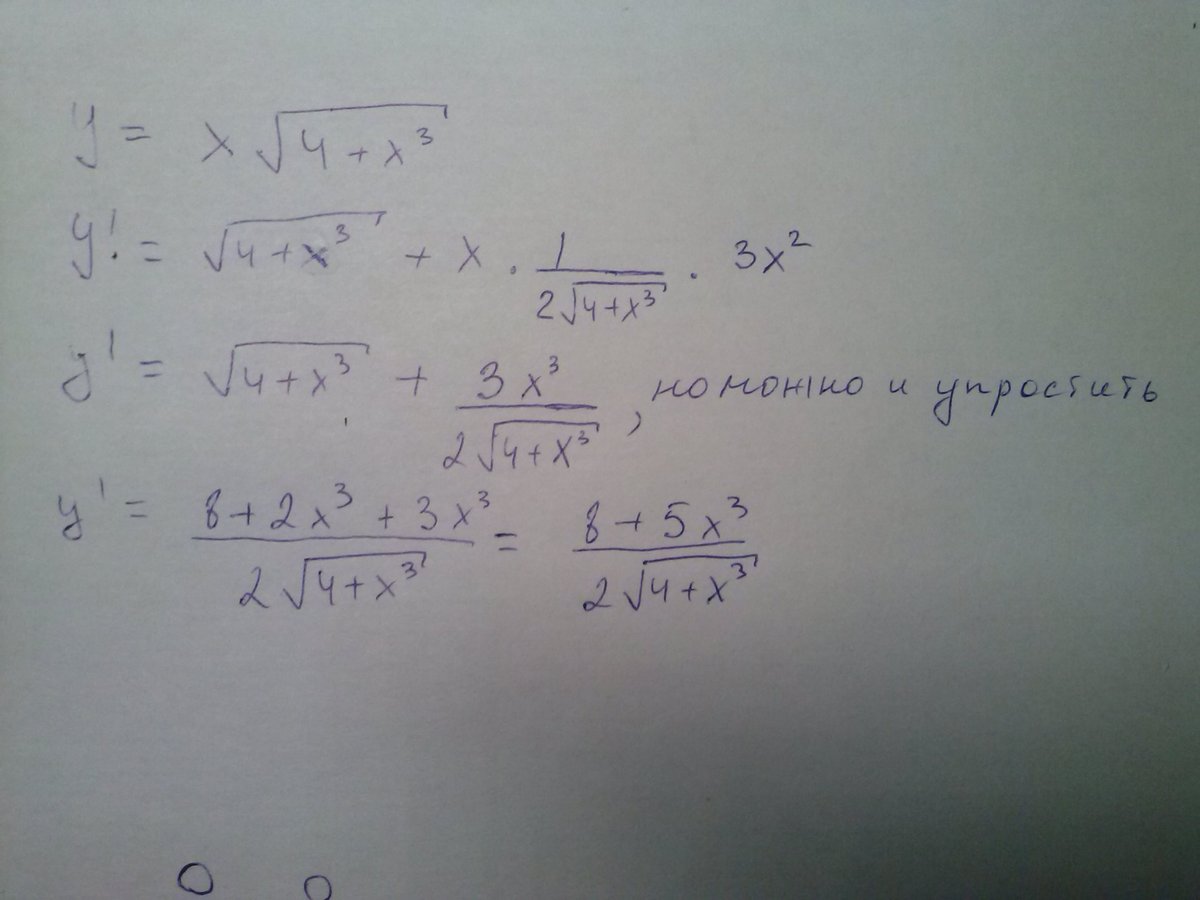 y = x√(4+x³)
y' = √(4+x³) + x · 1/(2√(4+x³)) · 3x²
y' = √(4+x³) + 3x³/(2√(4+x³)), но можно и упростить
y' = (8+2x³+3x³)/(2√(4+x³)) = (8+5x³)/(2√(4+x³))